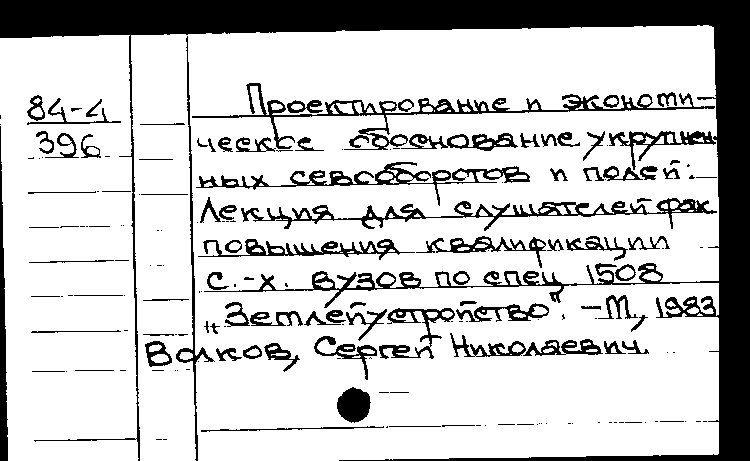 84-4
396
Проектирование и экономи-
ческое обоснование укрупнен-
ных севооборотов и полей:
Лекция для слушателей фак.
повышения квалификации
с.-х. вузов по спец. 1508
"Землеустройство". - М., 1983
Волков, Сергей Николаевич.